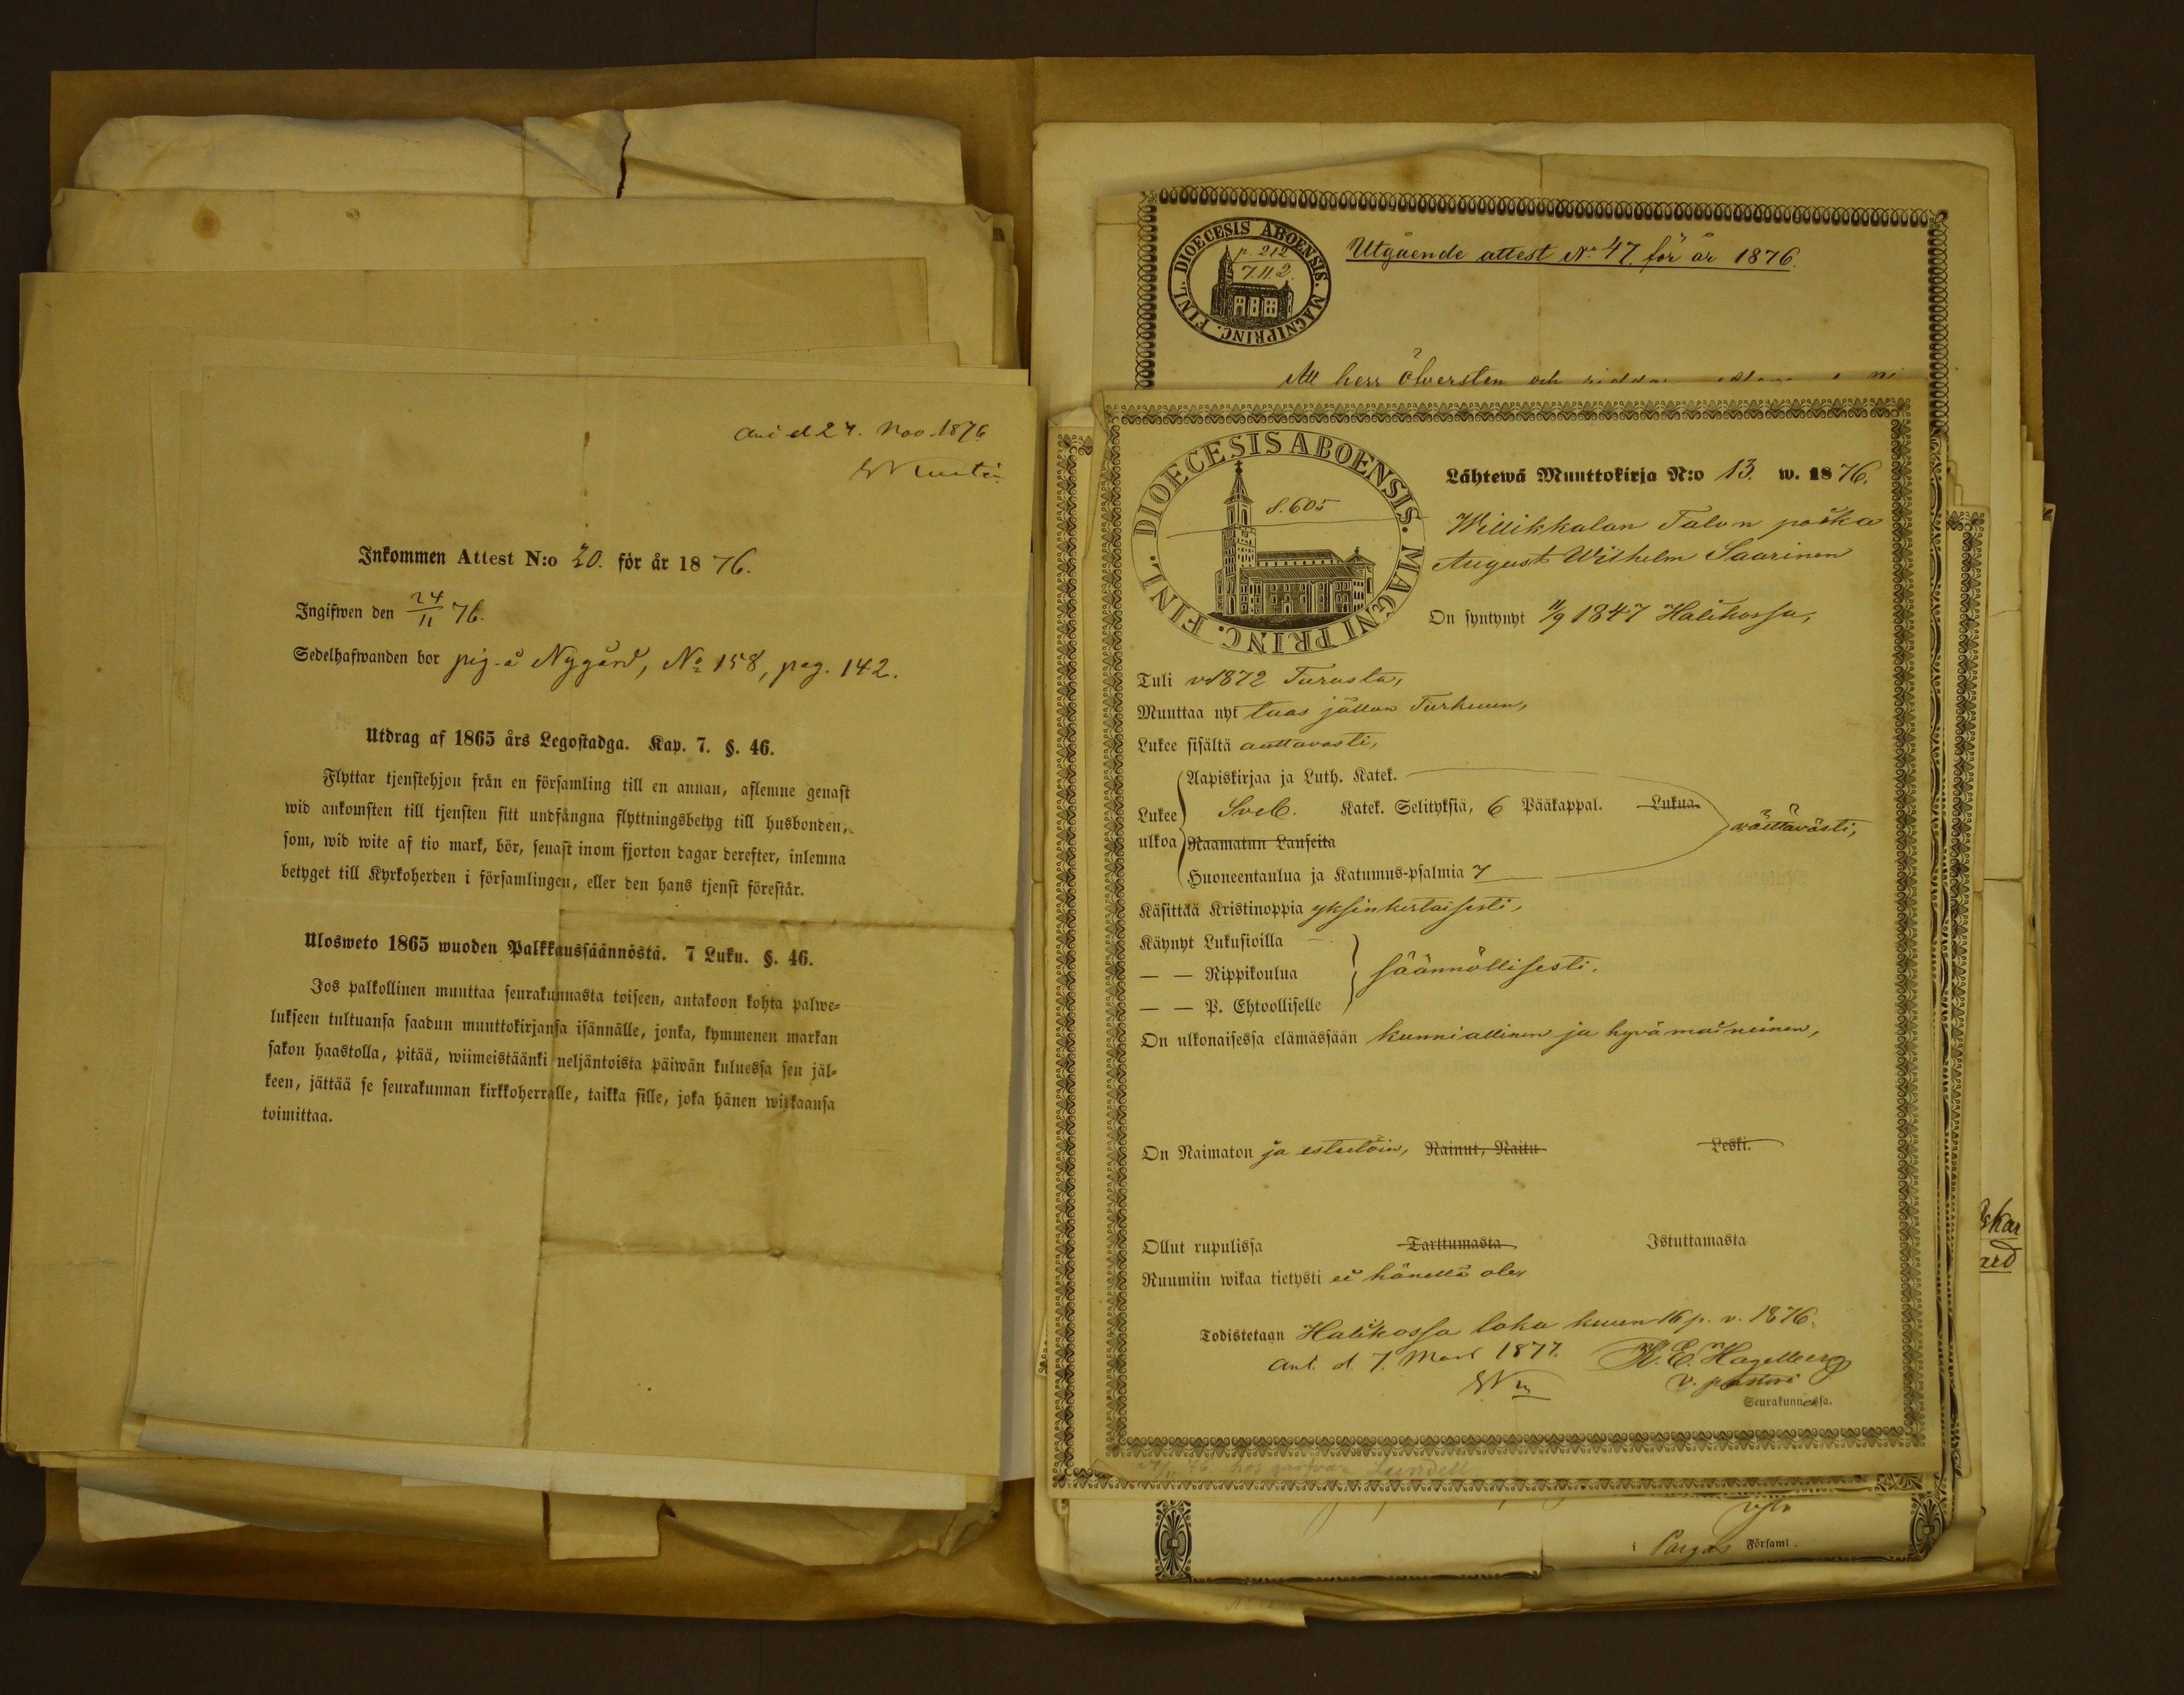 d 24. Nov. 1876
Inkommen Attest N:o 20. för år 1876.
Ingifwen den 24/11 76.
Sedelhafwanden bor pig. å Nygård, No 158, pag. 142.
Utdrag af 1865 års Legostadga. Kap. 7. §. 46.
Flyttar tjenstehjon från en församling till en annan, aflemne genast
wid ankomsten till tjensten sitt undfångna flyttningsbetyg till husbonden,
som, wid wite af tio mark, bör, senast inom fjorton dagar derefter, inlemna
betyget till Kyrkoherden i församlingen, eller den hans tjenst förestår.
Ulosweto 1865 wuoden Palkkaussäännöstä. 7 Luku. §. 46.
Jos palkollinen muuttaa seurakunnasta toiseen, antakoon kohta palwe=
lukseen tultuansa saadun muuttokirjansa isännälle, jonka, kymmenen markan
sakon haastolla, pitää, wiimeistäänki neljäntoista päiwän kuluessa sen jäl=
keen, jättää se seurakunnan kirkkoherralle, taikka sille, joka hänen wirkaansa
toimittaa.
DIOECESIS ABOENSIS. MAGNI PRINC. FINL.
p. 212
7.11.2.
Utgående attest No 47. för år 1876.
Att herr öfversten och
DIOECESIS ABOENSIS. MAGNI PRINC. FINL.
S. 605
Lähtewä Muuttokirja N:o 13. w. 1876.
Willikkalan Talon poika
August Wilhelm Saarinen
On syntynyt 11/9 1847 Halikossa,
Tuli v 1872 Turusta,
Muuttaa nyt taas jällan Turkuun,
Lukee sisältä auttavasti,
Aapiskirjaa ja Luth. Katek.
Lukee Sveb. Katek. Selityksiä, 6 Pääkappal. Lukua
ulkoa Raamatun Lauseita
välttävästi,
Huoneentaulua ja Katumus-psalmia 7
Käsittää Kristinoppia yksinkertaisesti,
Käynyt Lukusioilla
— — Rippikoulua säännöllisesti.
— — P. Ehtoolliselle
On ulkonaisessa elämässään kunniallinen ja hyvämaineinen,
On Naimaton ja esteetöin, Nainut, Naitu Leski.
Ollut rupulissa Tarttumasta Istuttamasta
Ruumiin wikaa tietysti ei hänellä ole,
Todistetaan Halikossa loka kuun 16 p. v. 1876.
Ank. d. 7. Mars 1877. K. E. Hagelberg
v. pastori
Seurakunnassa.
hos garfvare Lundell
i Pargas Församl.
skar